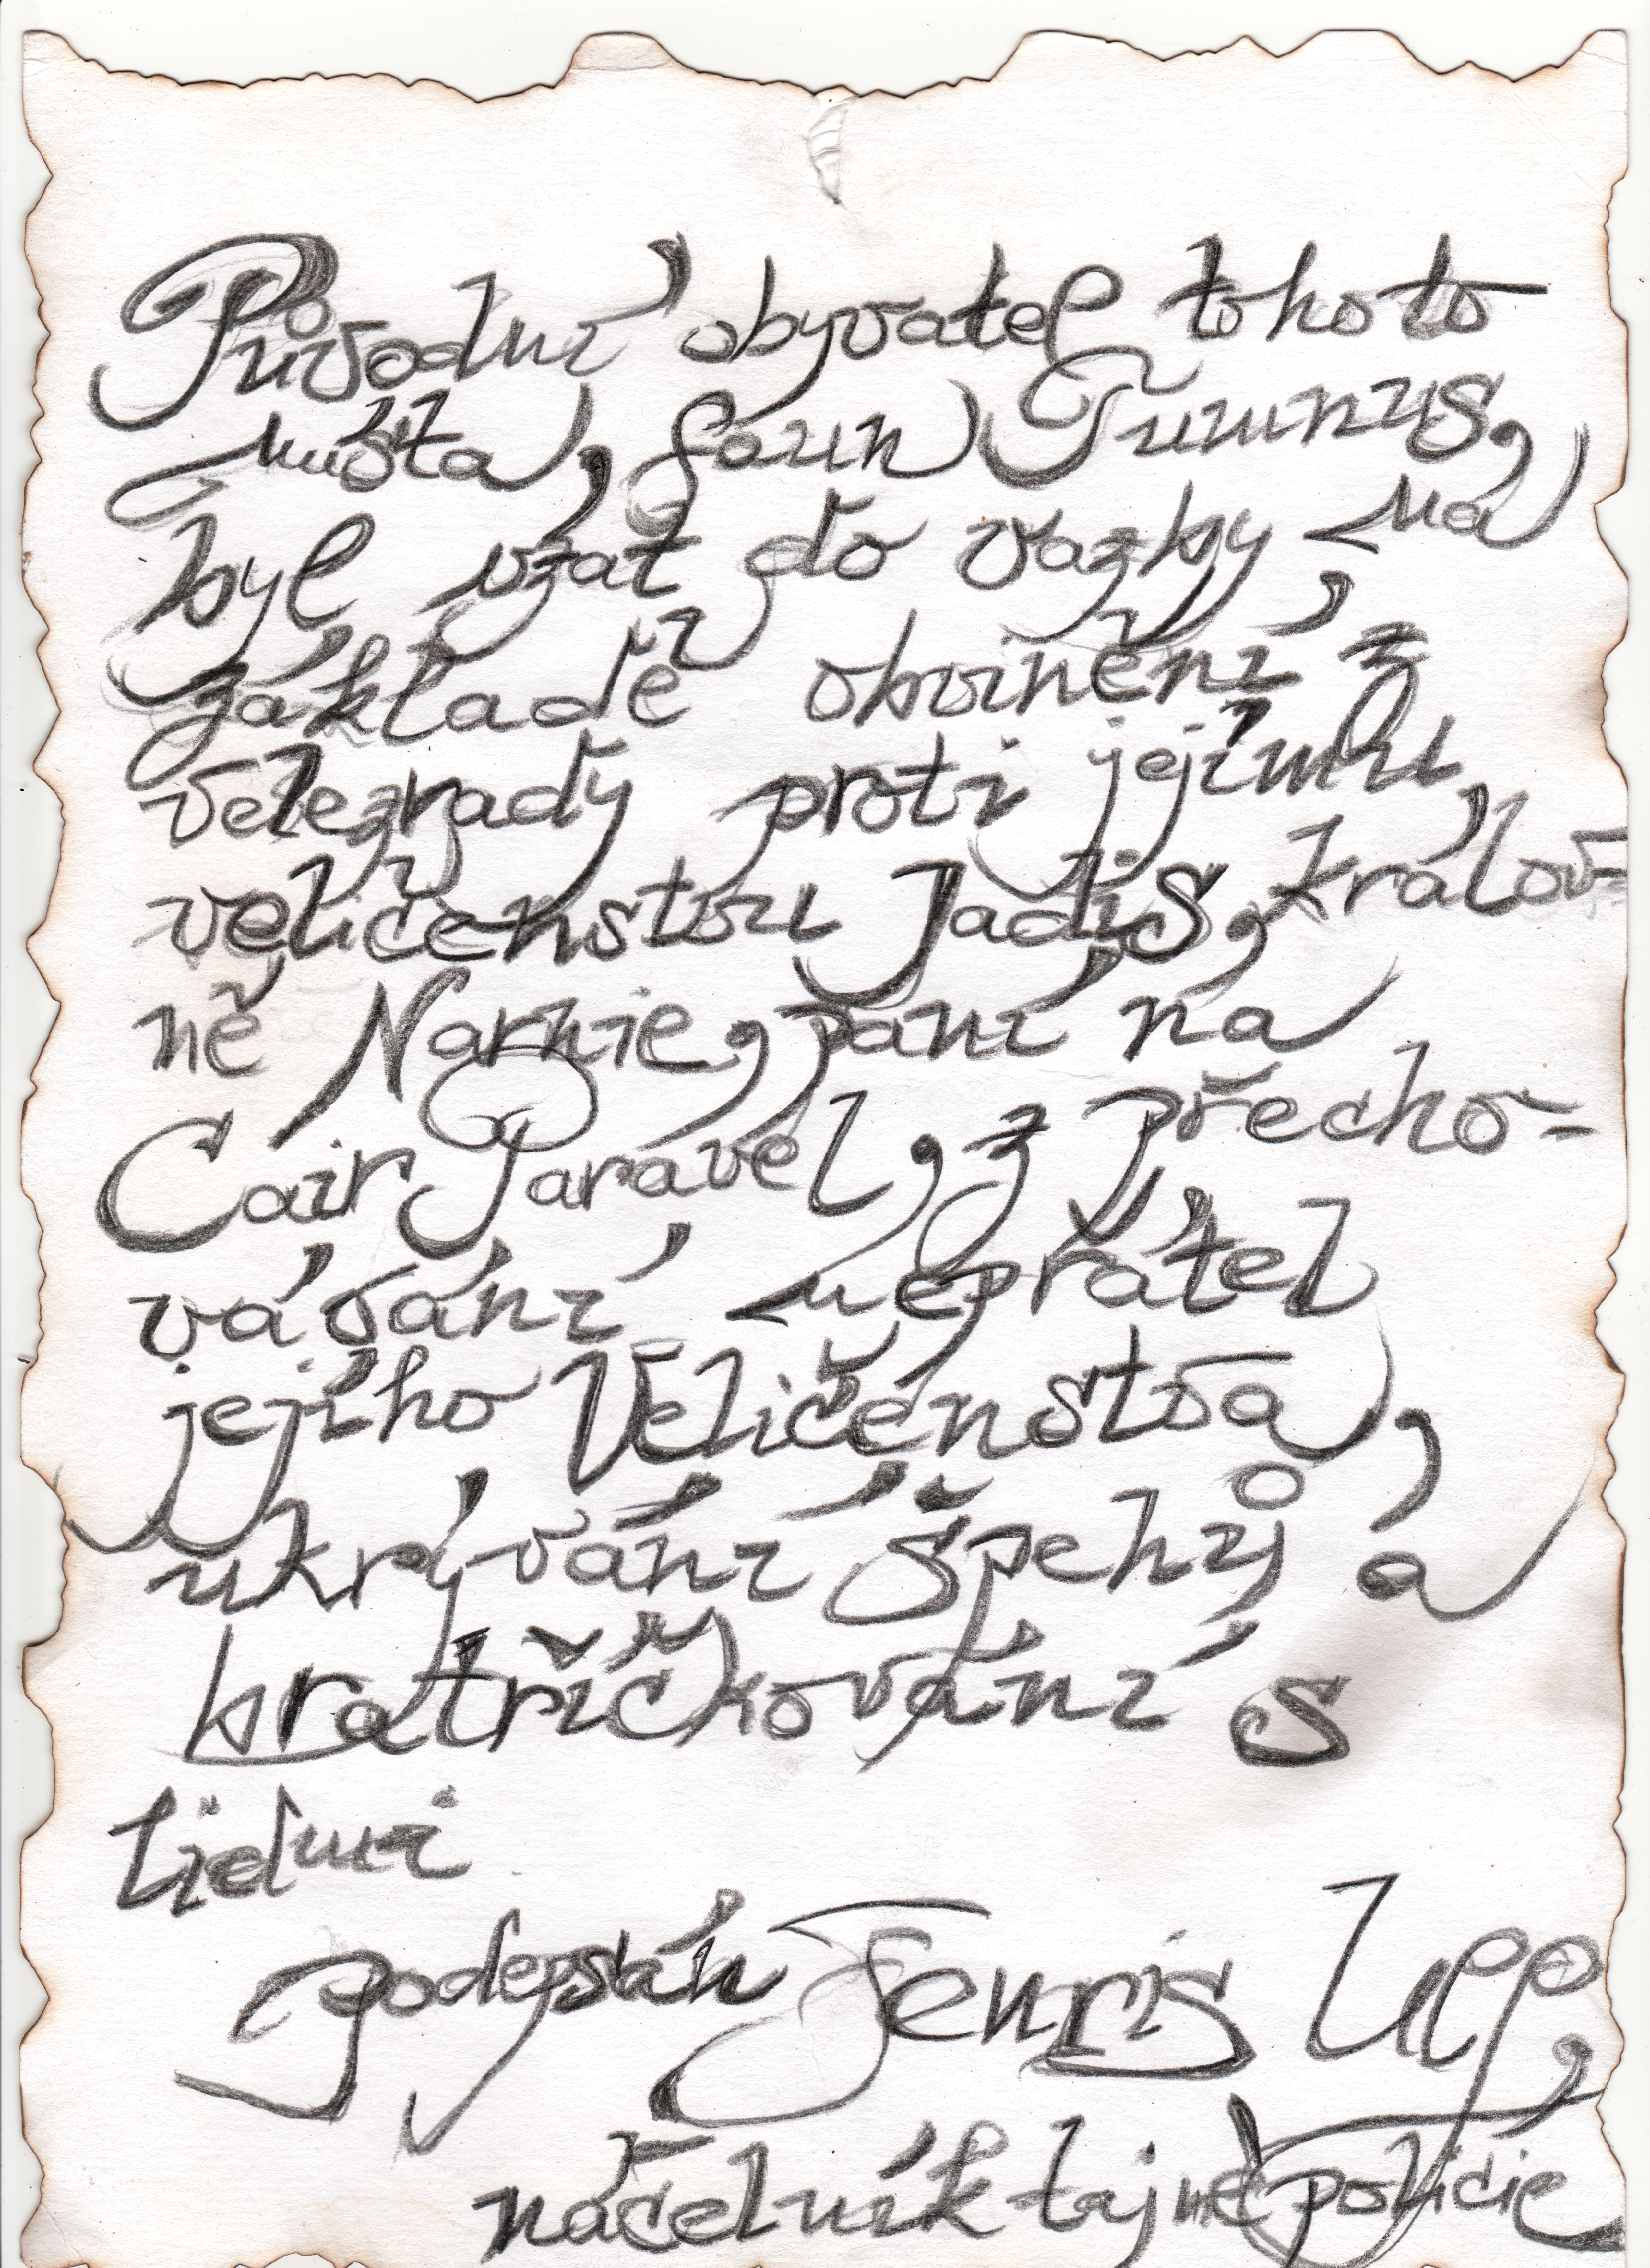 Původní obyvatel tohoto
místa, faun Tumnus,
byl vzat do vazby na
základě obvinění z
velezrady proti jejímu
veličenstvu Jadis, králov=
ně Narnie, paní na
Cair Paravel, z přecho=
vávání nepřátel
jejího Veličenstva,
ukrývání špehů a
bratříčkování s
lidmi
podepsán Fenris Ulf,
náčelník tajné policie